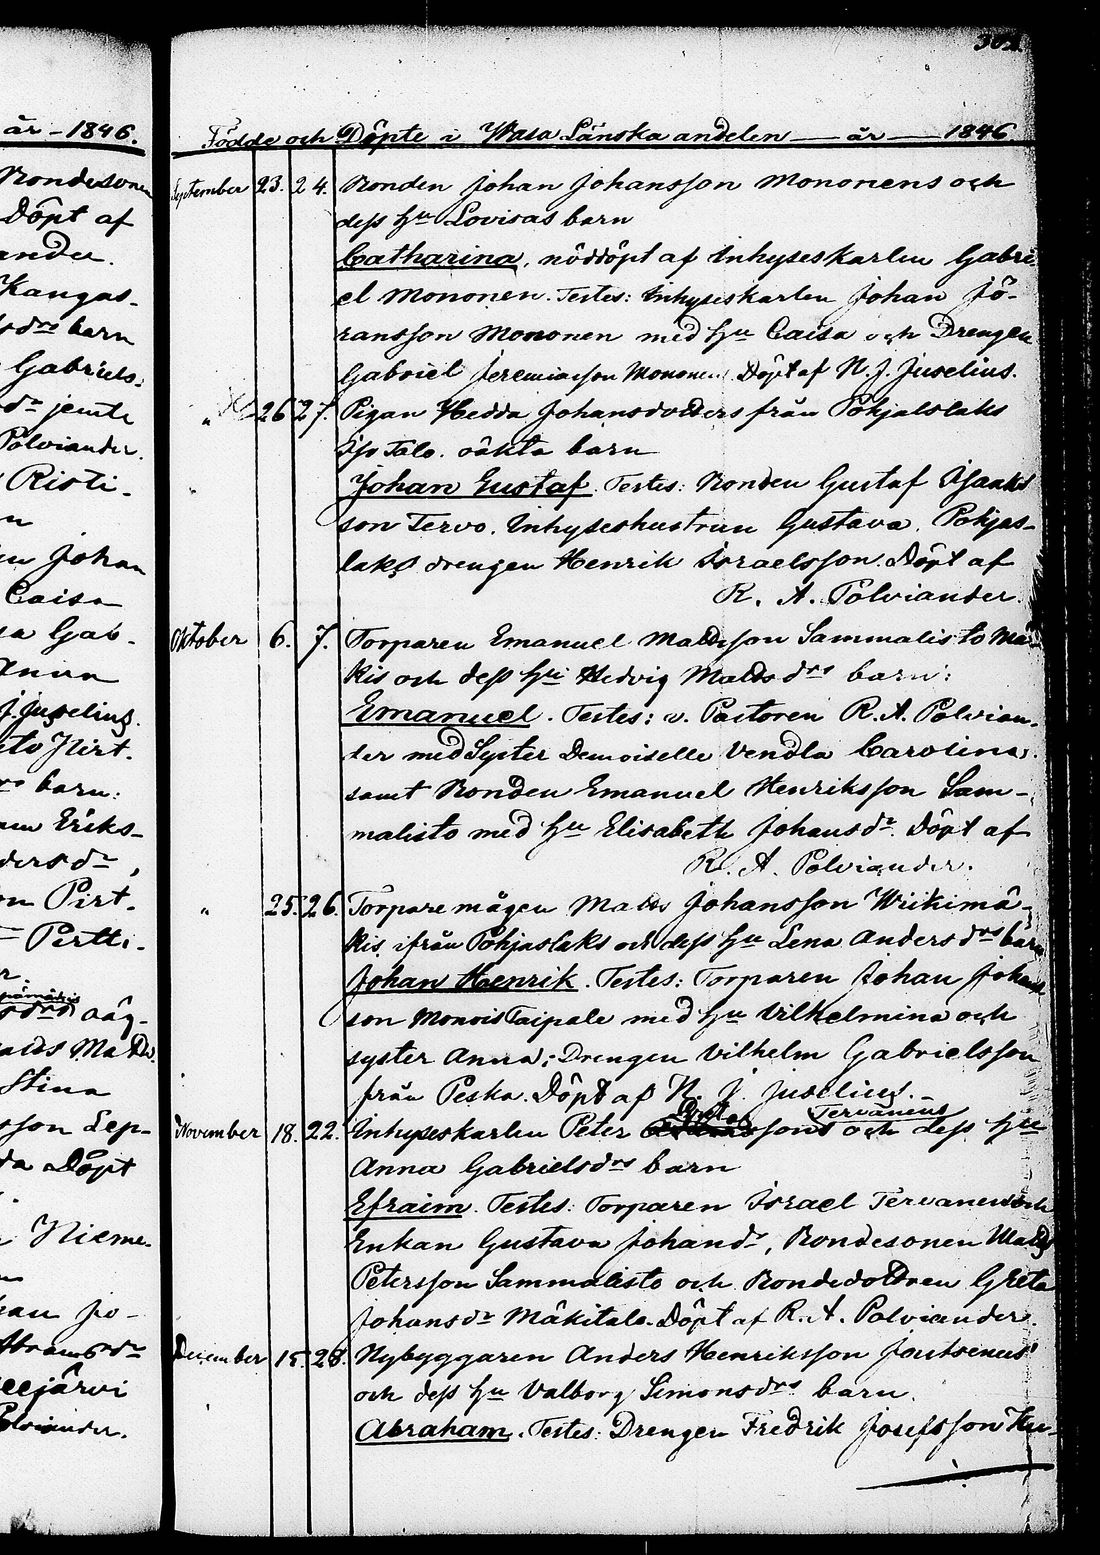 år - 1846.
Döpt af
Kangas-
barn
Gabriels-
jemte
Polviander.
Risti-
Johan
Caisa
Gab-
Anna
J. Juselius.
barn:
Eriks-
Pirt-
Pertti-
Stina
Lep-
Döpt
Nieme-
Polviander.
302.
Födde och Döpte i Wasa Länska andelen — år — 1846
September 23. 24. Bonden Johan Johansson Mononens och
dess hu Lovisas barn
Catharina, nöddöpt af Inhyseskarlen Gabri-
el Mononen. Testes: Inhyseskarlen Johan Jö-
ransson Mononen med hu Caisa och Drengen
Gabriel Jeremiasson Mononen Döpt af N. J. Juselius.
" 26 27. Pigan Hedda Johansdotters från Pohjalslaks
Iso Talo. oäkta barn
Johan Gustaf. Testes: Bonden Gustaf Isaaks
son Tervo. Inhyseshustrun Gustava. Pohjas-
laks drengen Henrik Israelsson. Döpt af
R. A. Polviander.
Oktober 6. 7. Torparen Emanuel Mattsson Sammalisto Mä-
kis och dess hu Hedvig Matts drs barn:
Emanuel. Testes: v. Pastoren R. A. Polvian-
der med Syster Demoiselle Vendla Carolina.
samt Bonden Emanuel Henriksson Sam-
malisto med hu Elisabeth Johansdr. Döpt af
R. A. Polviander.
" 25. 26. Torpare mågen Matts Johansson Wiikimä-
kis ifrån Pohjaslaks och dess hu Lena Anders drs barn
Johan Henrik. Testes: Torparen Johan Johans
son Monois Taipale med hu Vilhelmina och
syster Anna; Drengen Vilhelm Gabrielsson
från Peska. Döpt af N. J. Juselius.
Tervanens
November 18. 22. Inhyseskarlen Peter sons och dess hu
Anna Gabrielsdrs barn
Efraim. Testes: Torparen Israel Tervanen och
Enkan Gustava Johansdr, Bondesonen Matts
Petersson Sammalisto och Bondedottren Greta
Johansdr Mäkitalo. Döpt af R. A. Polviander.
December 15. 28. Nybyggaren Anders Henriksson Joutsenens
och dess hu Valborg Simonsdrs barn.
Abraham. Testes: Drengen Fredrik Josefsson Hu-